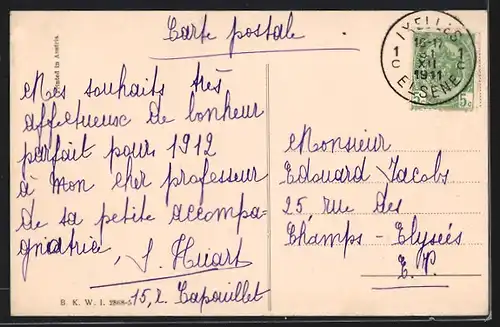 Carte postale
Printed in Austria.
Mes souhaits très
affectueux de bonheur
parfait pour 1912
à mon cher professeur
de sa petite accompa-
gnatrice
J. Huart
15, r. Capouillet
B. K. W. I. 2868-5
IXELLES
1C 1C
16-17
31
XII
1911
ELSENE
5c
Monsieur
Edouard Jacobs
25 rue des
Champs-Elysées
E. V.